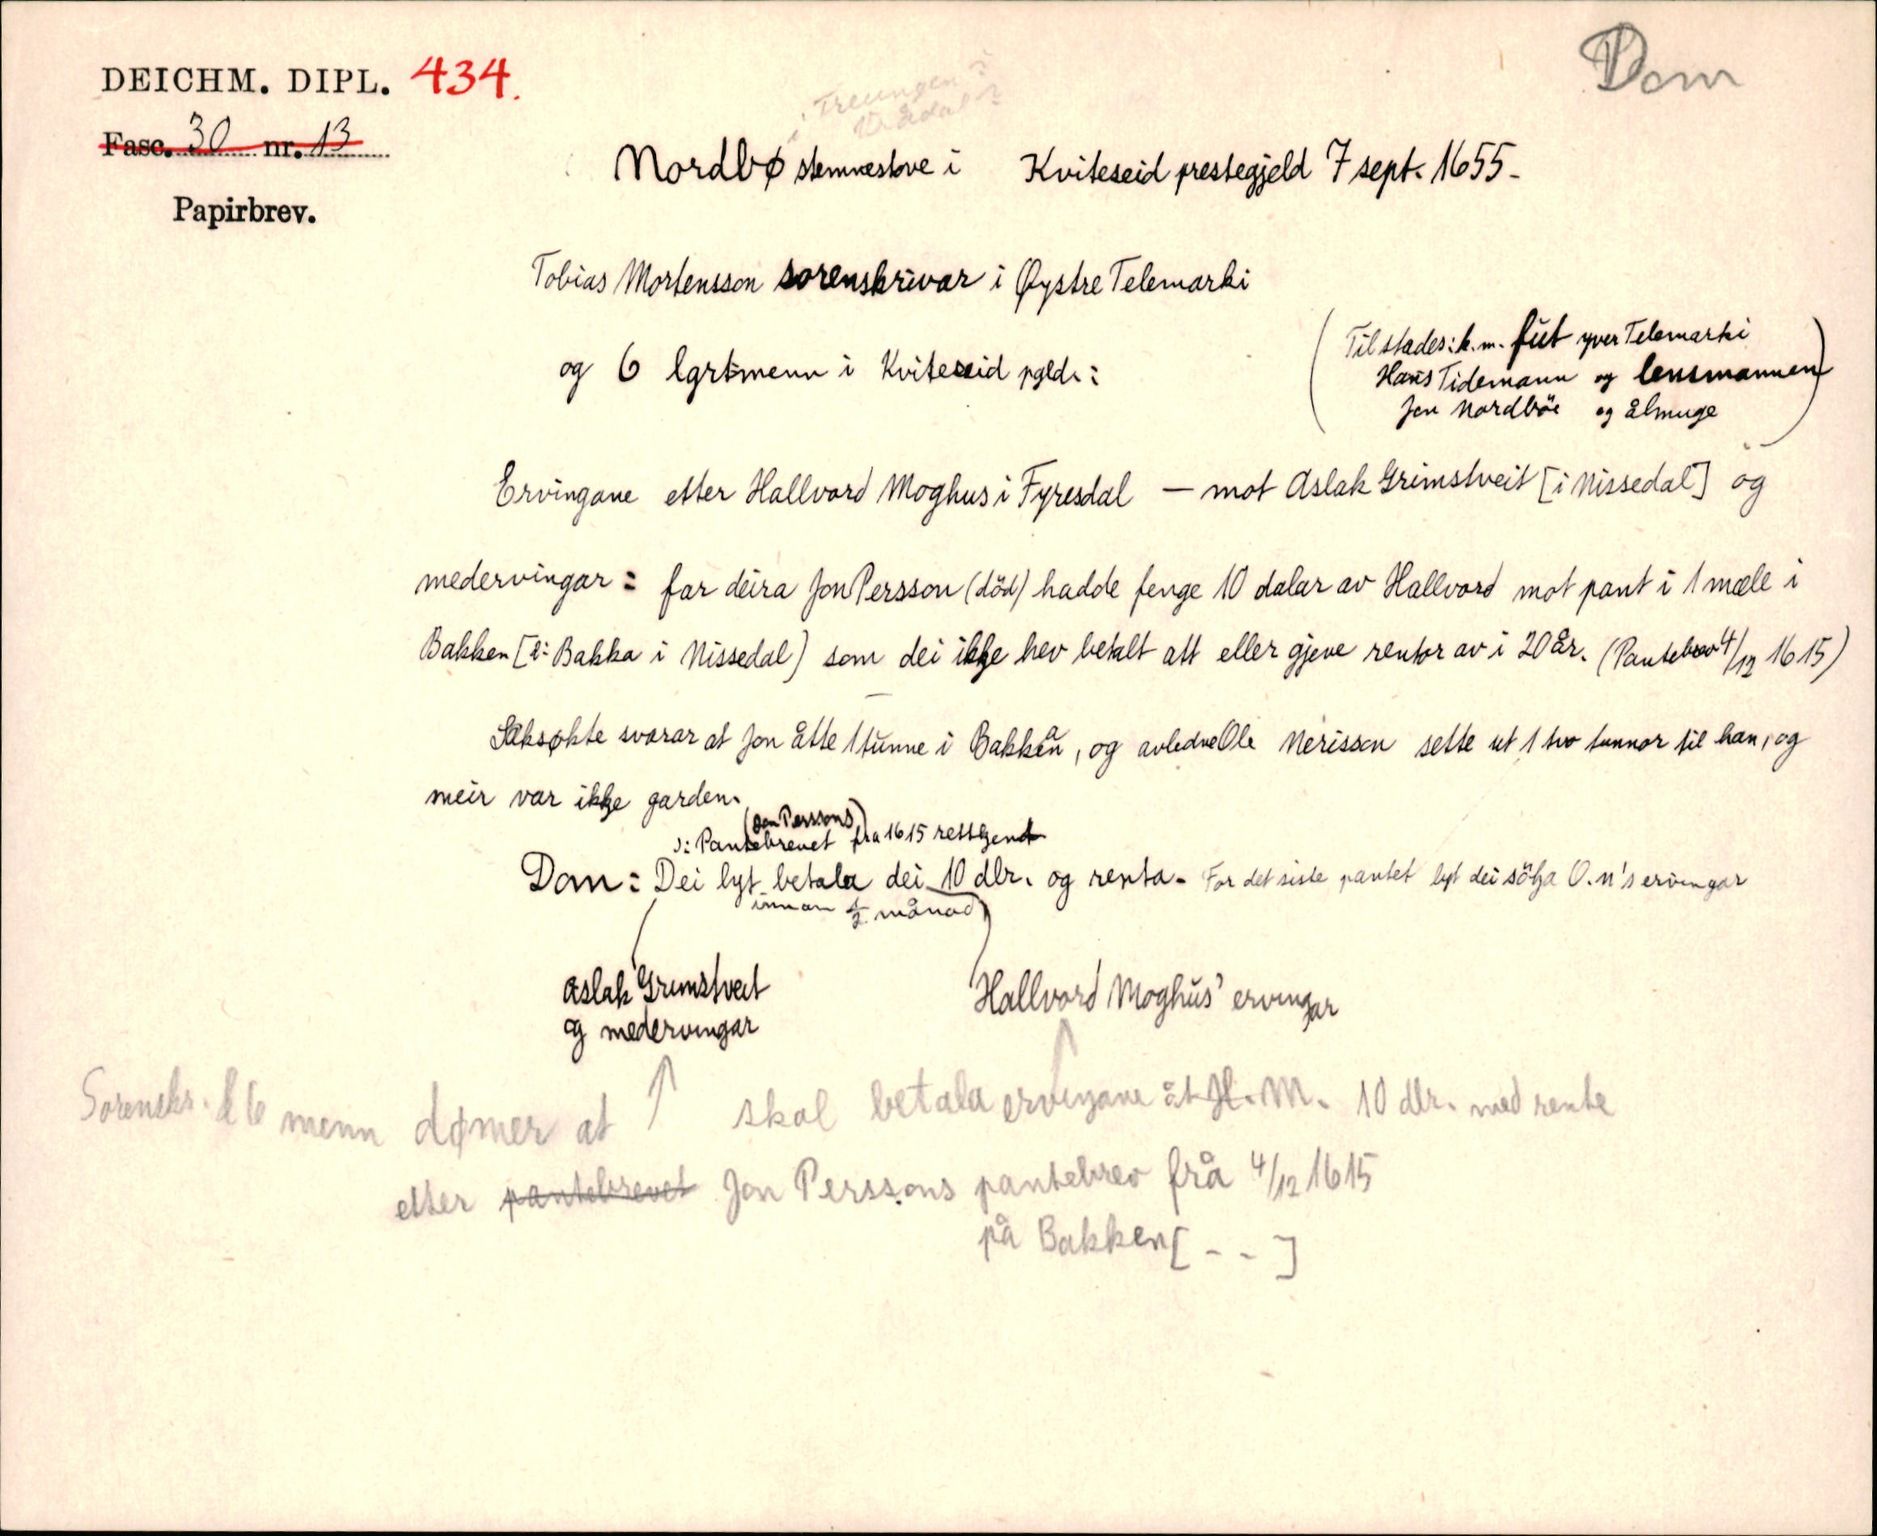 DEICHM. DIPL. 434.
Dom
Treungen i
Vrådal?
Fasc. 30 nr. 13
Nordbø stemnestove i Kviteseid prestegjeld 7 sept. 1655-
Papirbrev.
Tobias Mortensson sorenskrivar i Øystre Telemarki
og 6 lgrtmenn i Kviteseid pgld.:
(Til stades: k.m. fut yver Telemarki
Hans Tidemann og lensmannen
Jon Nordbøe og ålmuge)
Ervingane etter Hallvord Moghus i Fyresdal — mot Aslak Grimstveit [i Nissedal] og
medervingar: far deira Jon Persson (död) hadde fenge 10 dalar av Hallvord mot pant i 1 mæle i
Bakken [ɔ: Bakka i Nissedal] som dei ikkje hev betalt att eller gjeve rentor av i 20 år. (Pantebrev 4/12 1615)
Saksøkte svarar at Jon åtte 1 tunne i Bakken, og avledne Ole Nerisson sette ut 1 tvo tunnor til han, og
meir var ikkje garden.
(Jon Perssons)
ɔ: Pantebrevet fra 1615 rettkjend
Dom: Dei lyt betala dei 10 dlr. og renta. For det siste pantet lyt dei sökja O.N's ervingar
innan 1/2 månad
Aslak Grimstveit
og medervingar
Hallvord Moghus' ervingar
Sorenskr. & 6 menn dømer at ↑ skal betala ervingane åt H.M. 10 dlr. med rente
etter pantebrevet Jon Perssons pantebrev frå 4/12 1615
på Bakken [ - - ]